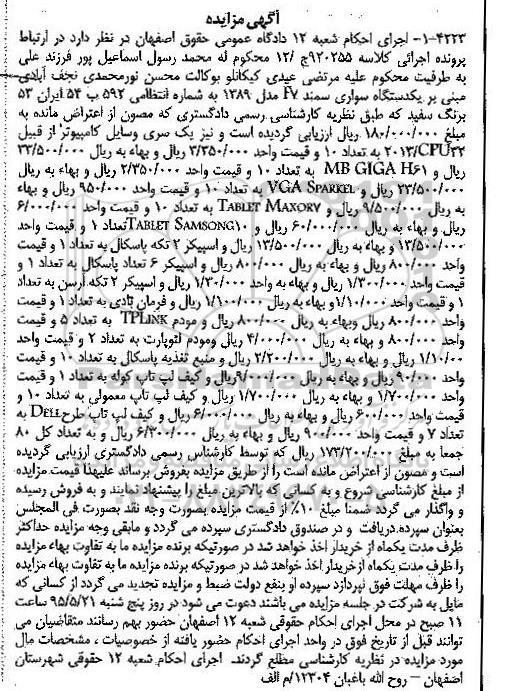 آگهی مزایده
۴۲۲۳-۱- اجرای احکام شعبه ۱۲ دادگاه عمومی حقوق اصفهان در نظر دارد در ارتباط
پرونده اجرائی کلاسه ۹۲۰۲۵۵ج /۱۲ محکوم له محمد رسول اسماعیل پور فرزند علی
به طرفیت محکوم علیه مرتضی عیدی کیکانلو بوکالت محسن نورمحمدی نجف آبادی
مبنی بر یکدستگاه سواری سمند F۷ مدل ۱۳۸۹ به شماره انتظامی ۵۹۲ ب ۵۴ ایران ۵۳
برنگ سفید که طبق نظریه کارشناسی رسمی دادگستری که مصون از اعتراض مانده به
مبلغ ۱۸۰/۰۰۰/۰۰۰ ریال ارزیابی گردیده است و نیز یک سری وسایل کامپیوتر از قبیل
۲۰۱۳/CPU۳۲ به تعداد ۱۰ و قیمت واحد ۳/۳۵۰/۰۰۰ ریال و بهاء به ریال ۳۳/۵۰۰/۰۰۰
ریال و MB GIGA H۶۱ به تعداد ۱۰ و قیمت واحد ۲/۳۵۰/۰۰۰ ریال و بهاء به ریال
۲۳/۵۰۰/۰۰۰ ریال و VGA SPARKEL به تعداد ۱۰ و قیمت واحد ۹۵۰/۰۰۰ ریال و بهاء
به ریال ۹/۵۰۰/۰۰۰ ریال و TABLET MAXOR۷ به تعداد ۱۰ و قیمت واحد ۶/۰۰۰/۰۰۰
ریال و بهاء به ریال ۶۰/۰۰۰/۰۰۰ ریال و TABLET SAMSONG۱۰ تعداد ۱ و قیمت واحد
۱۳/۵۰۰/۰۰۰ و بهاء به ریال ۱۳/۵۰۰/۰۰۰ ریال و اسپیکر ۲ تکه پاسکال به تعداد ۱ و قیمت
واحد ۸۰۰/۰۰۰ ریال و بهاء به ریال ۸۰۰/۰۰۰ ریال و اسپیکر ۶ تعداد پاسکال به تعداد ۱ و
قیمت واحد ۱/۳۰۰/۰۰۰ ریال و بهاء به واحد ۱/۳۰۰/۰۰۰ ریال و اسپیکر ۲ تکه ارسن به تعداد
۱ و قیمت واحد ۱/۱۰۰/۰۰۰و بهاء به ریال ۱/۱۰۰/۰۰۰ ریال و فرمان بادی به تعداد ۱ و قیمت
واحد ۸۰۰/۰۰۰ ریال وبهاء به ریال ۸۰۰/۰۰۰ ریال و مودم TPLINK به تعداد ۵ و قیمت
واحد ۸۰۰/۰۰۰ و بهاء به ریال ۴/۰۰۰/۰۰۰ ریال ومودم لتوپارت به تعداد ۲ و قیمت واحد
۱/۱۰۰/۰۰۰ ریال و بهاء به ریال ۲/۲۰۰/۰۰۰ ریال و منبع تغذیه پاسکال به تعداد ۱۰ و قیمت
واحد ۹۰۰/۰۰۰ ریال و بهاء به ریال ۹/۰۰۰/۰۰۰ریال و کیف لپ تاپ کوله به تعداد ۱ و قیمت
واحد ۱/۷۰۰/۰۰۰ و بهاء به ریال ۱/۷۰۰/۰۰۰ ریال و کیف لپ تاپ معمولی به تعداد ۱۰ و
قیمت واحد ۶۰۰/۰۰۰ ریال و بهاء به ریال ۶/۰۰۰/۰۰۰ ریال و کیف لپ تاپ طرح DELL به
تعداد ۷ و قیمت واحد ۹۰۰/۰۰۰ ریال و بهاء به ریال ۶/۳۰۰/۰۰۰ ریال و به تعداد کل ۸۰
جمعا به مبلغ ۱۷۳/۲۰۰/۰۰۰ ریال که توسط کارشناس رسمی دادگستری ارزیابی گردیده
است و مصون از اعتراض مانده است را از طریق مزایده بفروش برساند علیهذا قیمت مزایده
از مبلغ کارشناسی شروع و به کسانی که بالاترین مبلغ را پیشنهاد نمایند و به فروش رسیده
و واگذار می گردد ضمنا مبلغ ۱۰٪ از قیمت مزایده بصورت وجه نقد بصورت فی المجلس
بعنوان سپرده دریافت و در صندوق دادگستری سپرده می گردد و مابقی وجه مزایده حداکثر
ظرف مدت یکماه از خریدار اخذ خواهد شد در صورتیکه برنده مزایده ما به تفاوت بهاء مزایده
را ظرف مدت یکماه از خریدار اخذ خواهد شد در صورتیکه برنده مزایده ما به تفاوت بهاء مزایده
را ظرف مهلت فوق نپردازد سپرده او بنفع دولت ضبط و مزایده تجدید می گردد از کسانی که
مایل به شرکت در جلسه مزایده می باشند دعوت می شود در روز پنج شنبه ۹۵/۵/۲۱ ساعت
۱۱ صبح در محل اجرای احکام حقوقی شعبه ۱۲ اصفهان حضور بهم رسانند متقاضیان می
توانند قبل از تاریخ فوق در واحد اجرای احکام حضور یافته از خصوصیات ، مشخصات مال
مورد مزایده در نظریه کارشناسی مطلع گردند. اجرای احکام شعبه ۱۲ حقوقی شهرستان
اصفهان – روح الله باغبان ۱۲۳۰۴/م الف